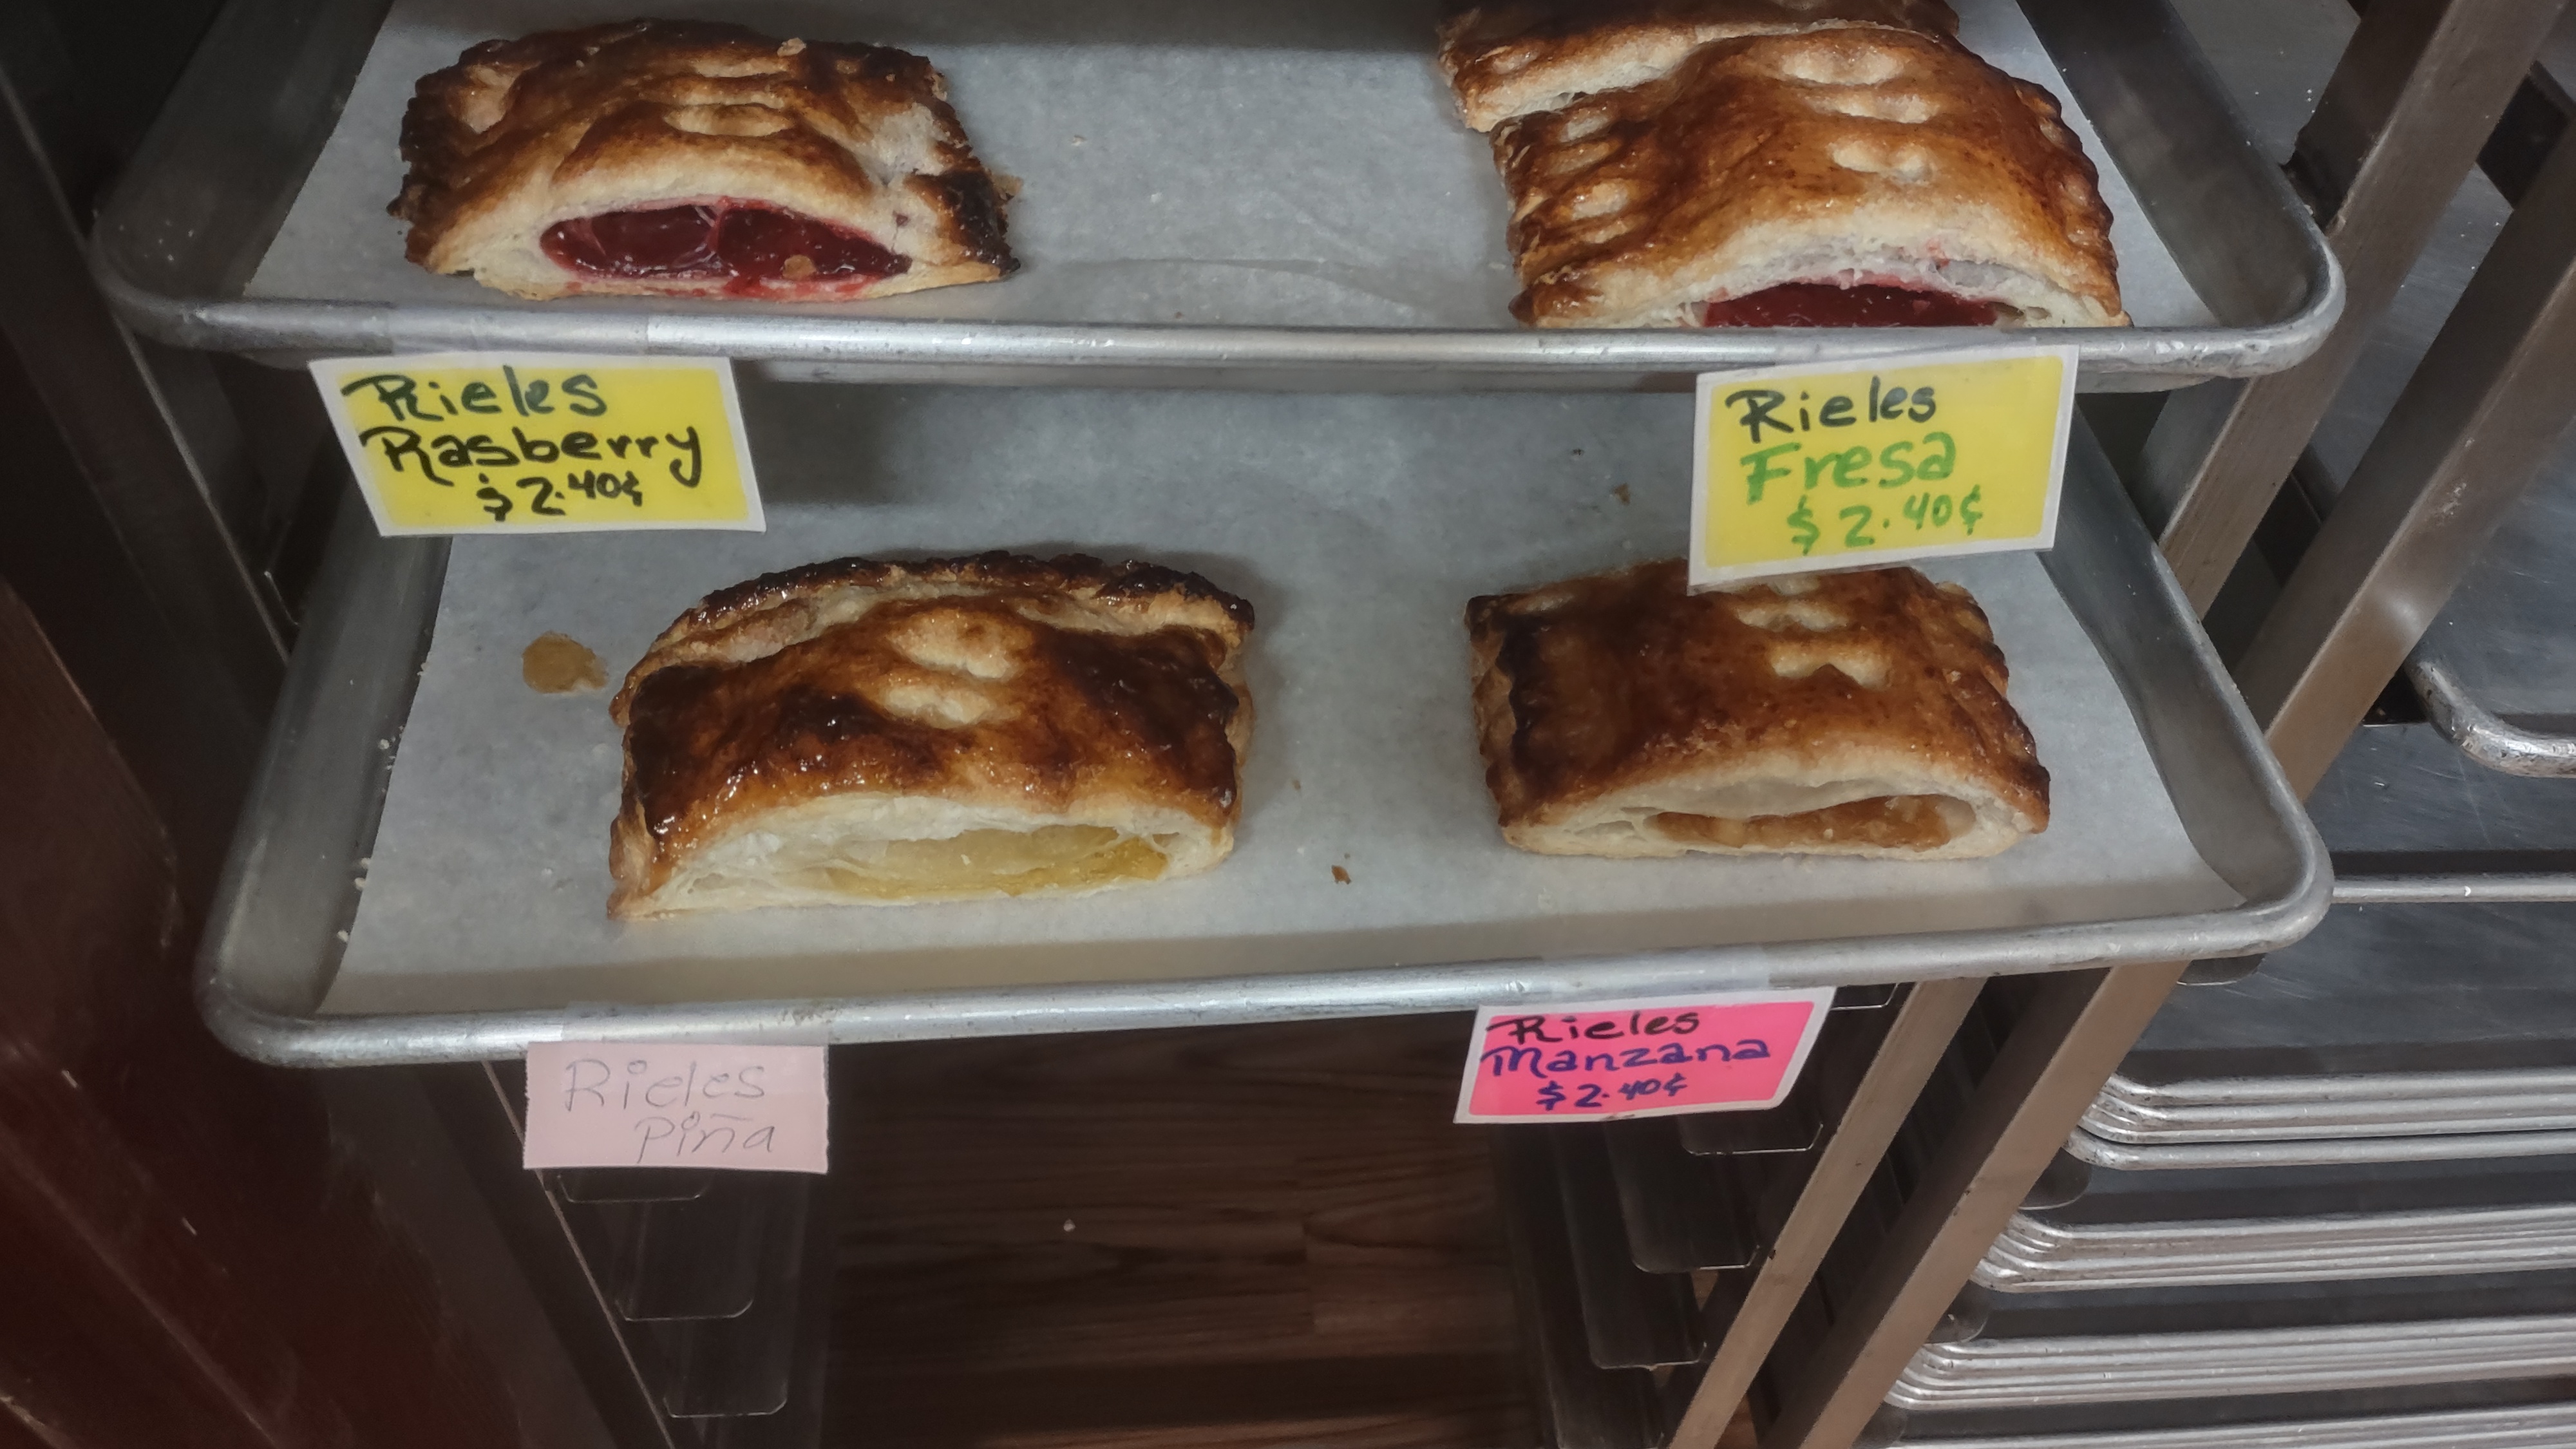 Rieles
Rasberry
$2.40¢
Rieles
Fresa
$2.40¢
Rieles
Piña
Rieles
Manzana
$2.40¢